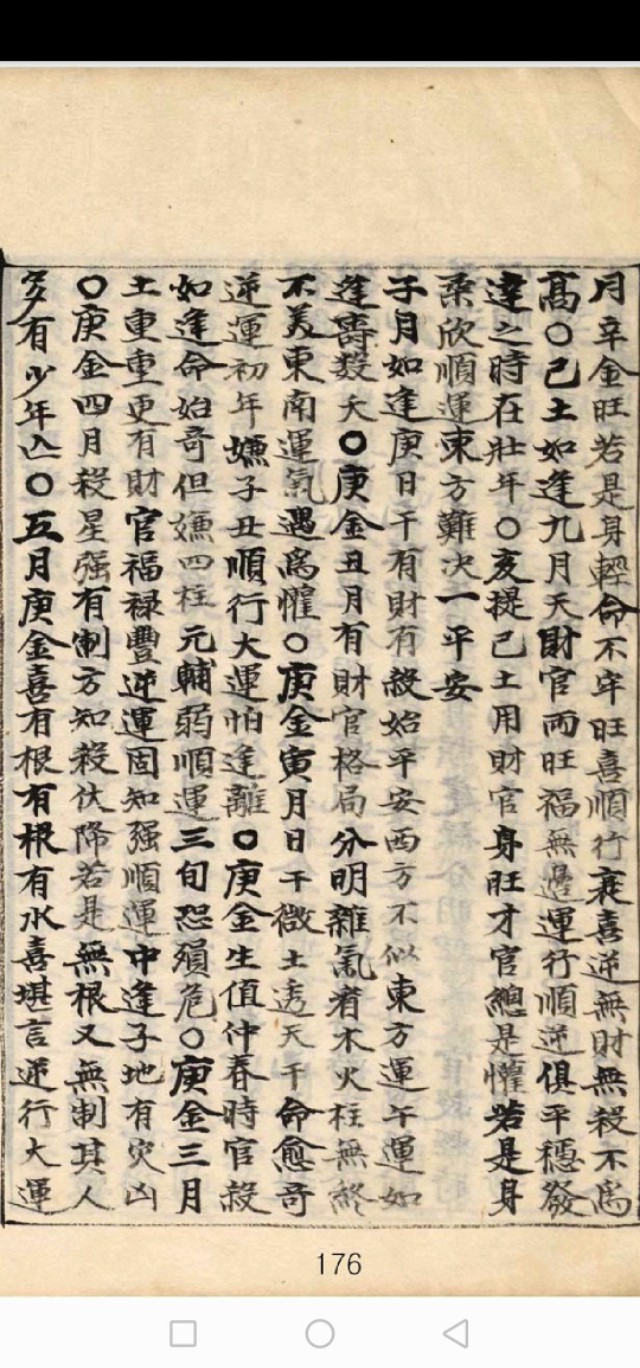 月辛金旺若是身輕命不牢旺喜順行衰喜逆無財無殺不為
高○己土如逢九月天財官両旺福無邊運行順逆俱平穩發
達之時在壯年○亥提己土用財官身旺才官總是懽若是身
柔欣順運東方難決一平安
子月如逢庚日干有財有殺始平安西方不似東方運午運如
逢壽数夭○庚金丑月有財官格局分明雜氣看木火柱無終
不美東南運氣遇為懽○庚金寅月日干微土透天干命愈奇
逆運初年嫌子丑順行大運怕逢離○庚金生值仲春時官殺
如逢命始奇但嫌四柱元輔弱順運三旬恐殞危○庚金三月
土重重更有財官福禄豐逆運固知强順運中逢子地有灾凶
○庚金四月殺星强有制方知殺伏降若是無根又無制其人
多有少年亾○五月庚金喜有根有根有水喜堪言逆行大運
176